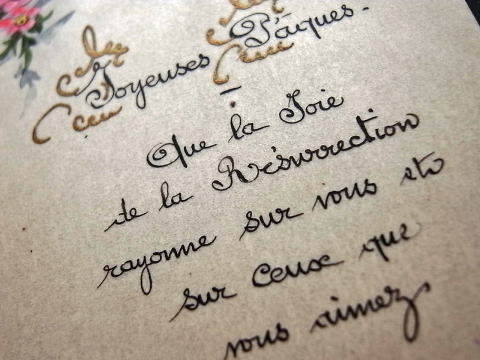 Joyeuses Pâques.
Que la Joie
de la Résurrection
rayonne sur vous et
sur ceux que
vous aimez